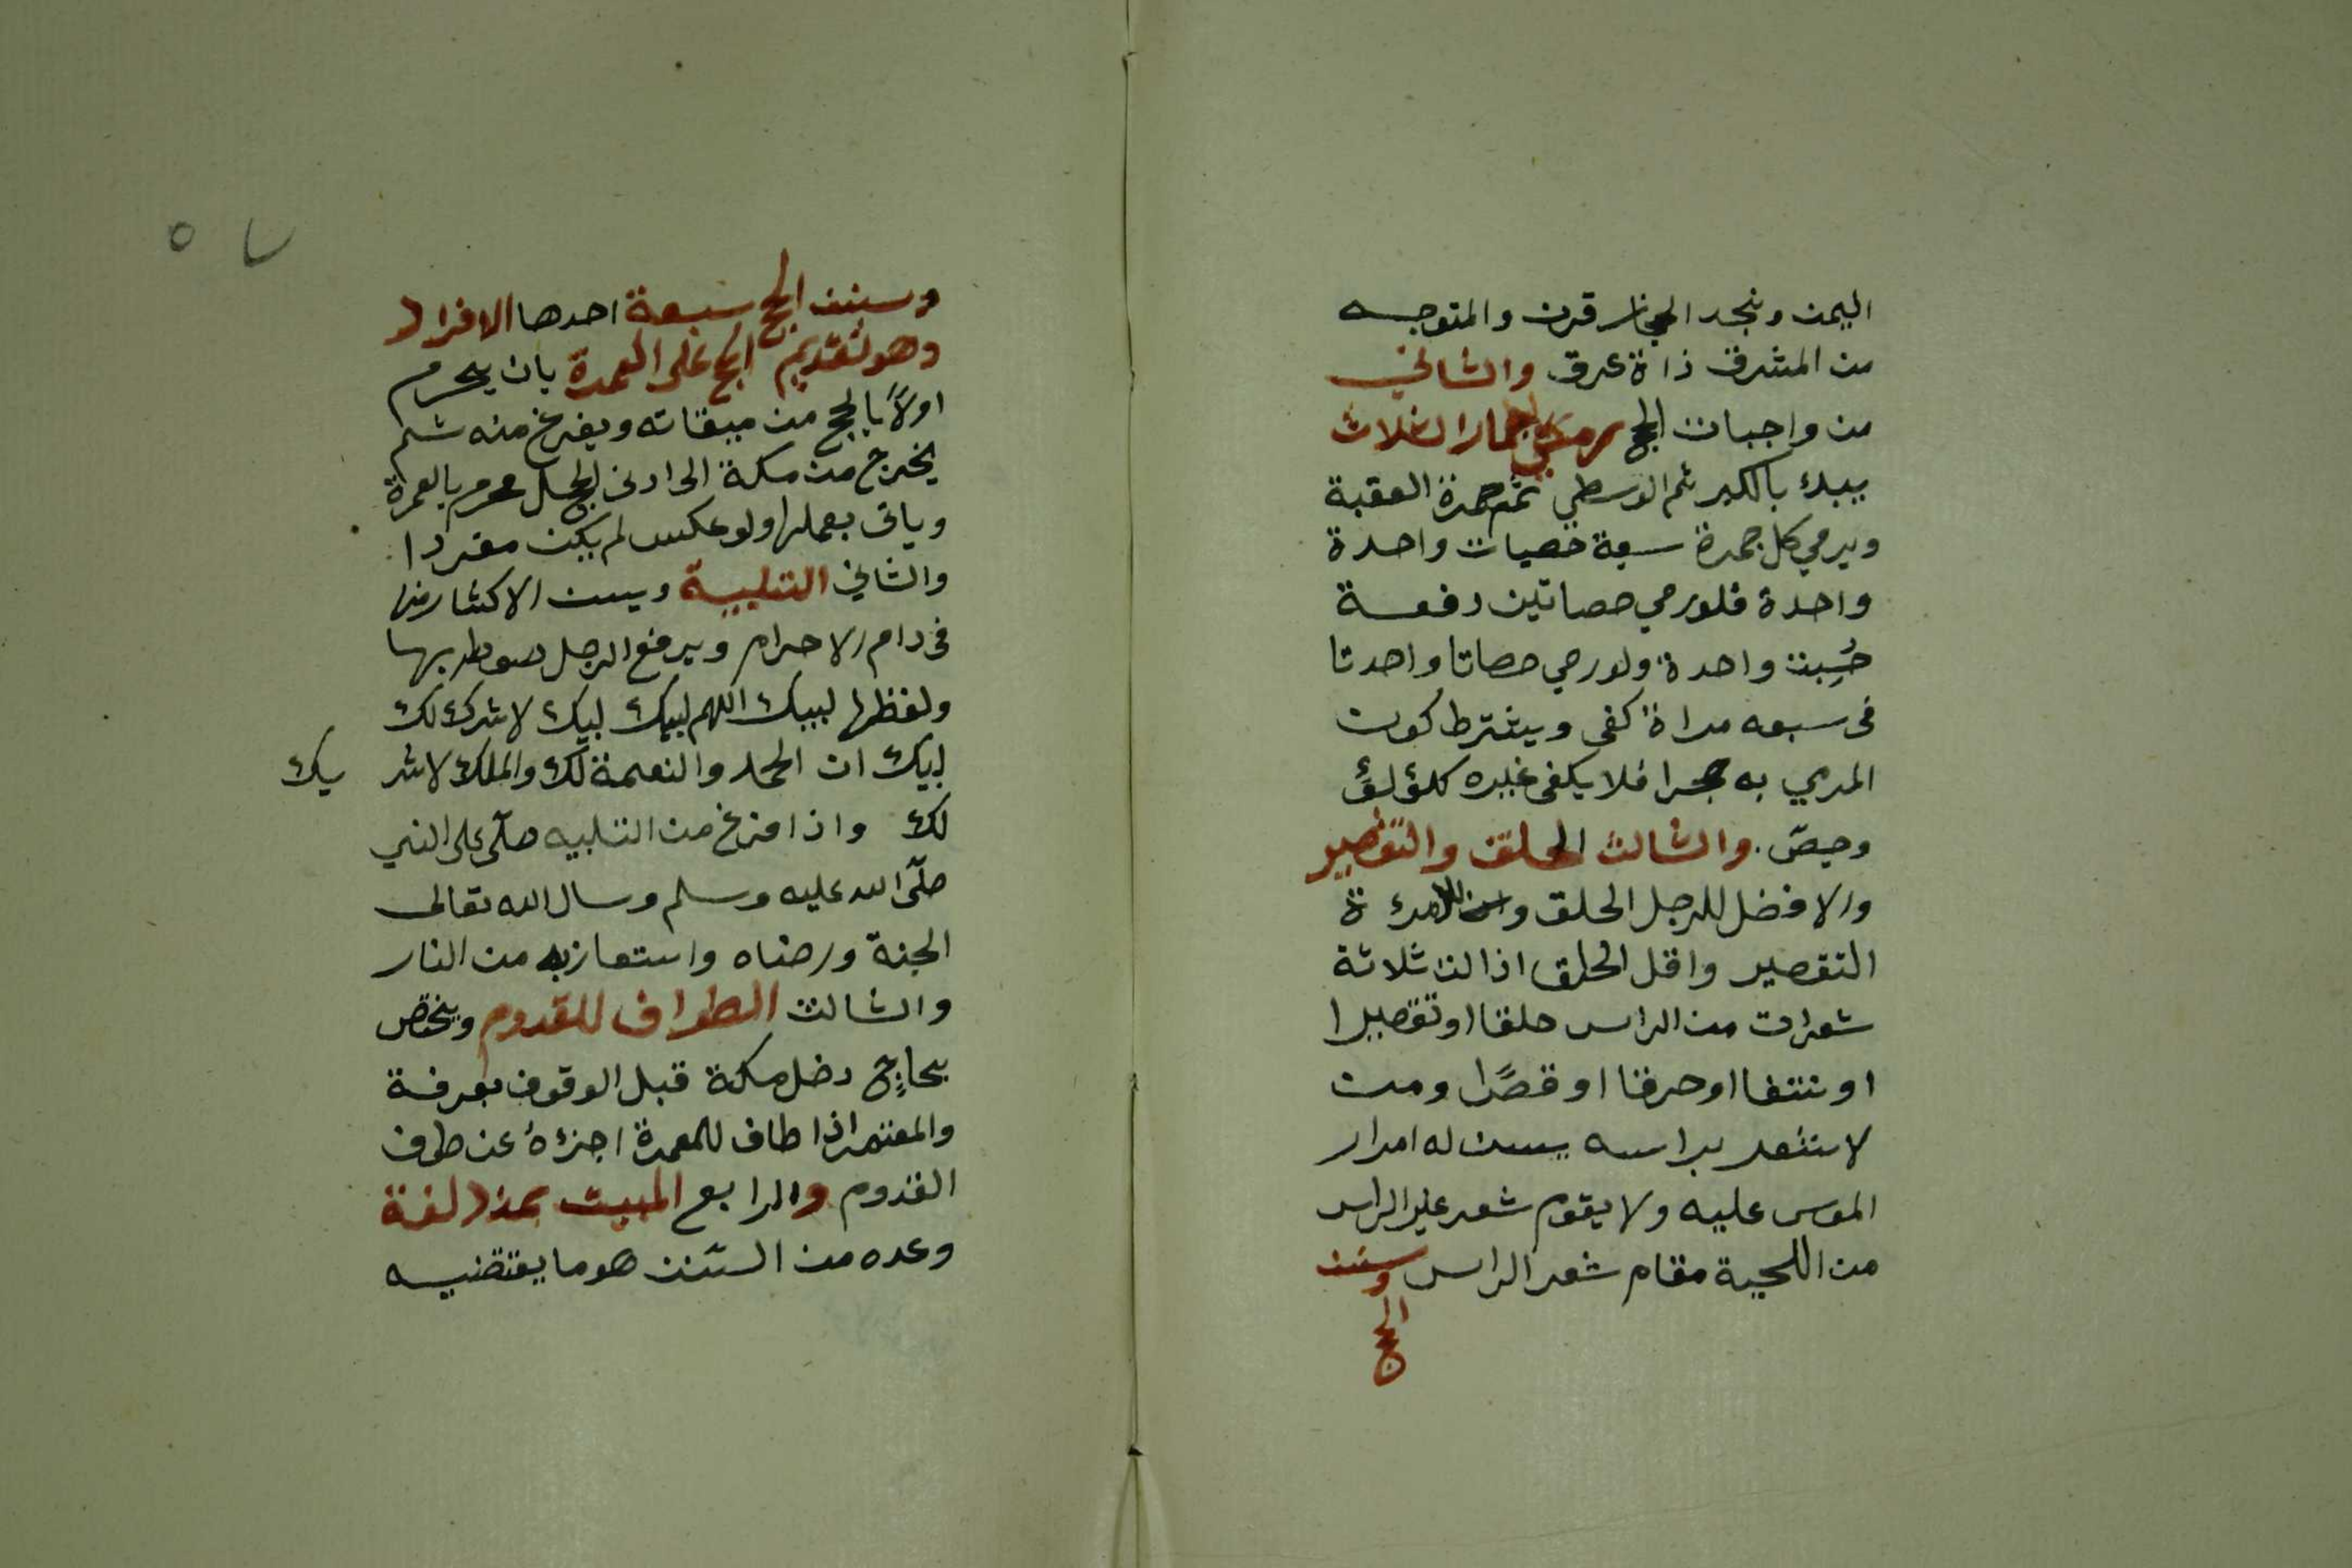 اليمن ونجد الحجاز قرن والمتوجه
من المشرق ذاة عرق والثاني
من واجبات الحج رمي الجمار الثلاث
يبدء بالكبر ثم الوسطي ثم جمرة العقبة
ويرمي كل جمرة سبعة حصيات واحدة
واحدة فلو رمي حصاتين دفعة
حُسِبت واحدة ولو رمي حصاتا واحدتا
فى سبعه مراة كفى ويشترط كون
المرمي به حجرا فلا يكفى غيره كلؤلؤ
وجصّ. والثالث الحلق والتقصير
والافضل للرجل الحلق وللامرءة
التقصير واقل الحلق اذالت ثلاثة
شعرات من الراس حلقا او تقصيرا
او نتفا او حرقا او قصًّا ومن
لا شعر براسه يسن له امرار
الموس عليه ولا يقوم شعر غير الراس
من اللحية مقام شعر الراس وسنن
الحج
٥٧
وسنن الحج سبعة احدها الافراد
وهو تقديم الحج على العمرة بان يحرم
اولاً بالحج من ميقاته ويفرغ منه ثم
يخرج من مكة الى ادنى الحل محرم بالعمرة
وياتى بعملها ولو عكس لم يكن مفردا
والثاني التلبية ويسن الاكثار منها
فى دام الاحرام ويرفع الرجل صوطه بها
ولفظها لبيك اللهم لبيك لبيك لا شرك لك
لبيك ان الحمد والنعمة لك والملك لا شر يك
لك واذا فرغ من التلبيه صلّى على النبي
صلّى الله عليه وسلم وسال الله تعالى
الجنة ورضاه واستعاذ به من النار
والثالث الطواف للقدوم ويختص
بحاجٍ دخل مكة قبل الوقوف بعرفة
والمعتمر اذا طاف للعمرة اجزءهُ عن طوف
القدوم والرابع المبيت بمزدلفة
وعده من السنن هو ما يقتضيه